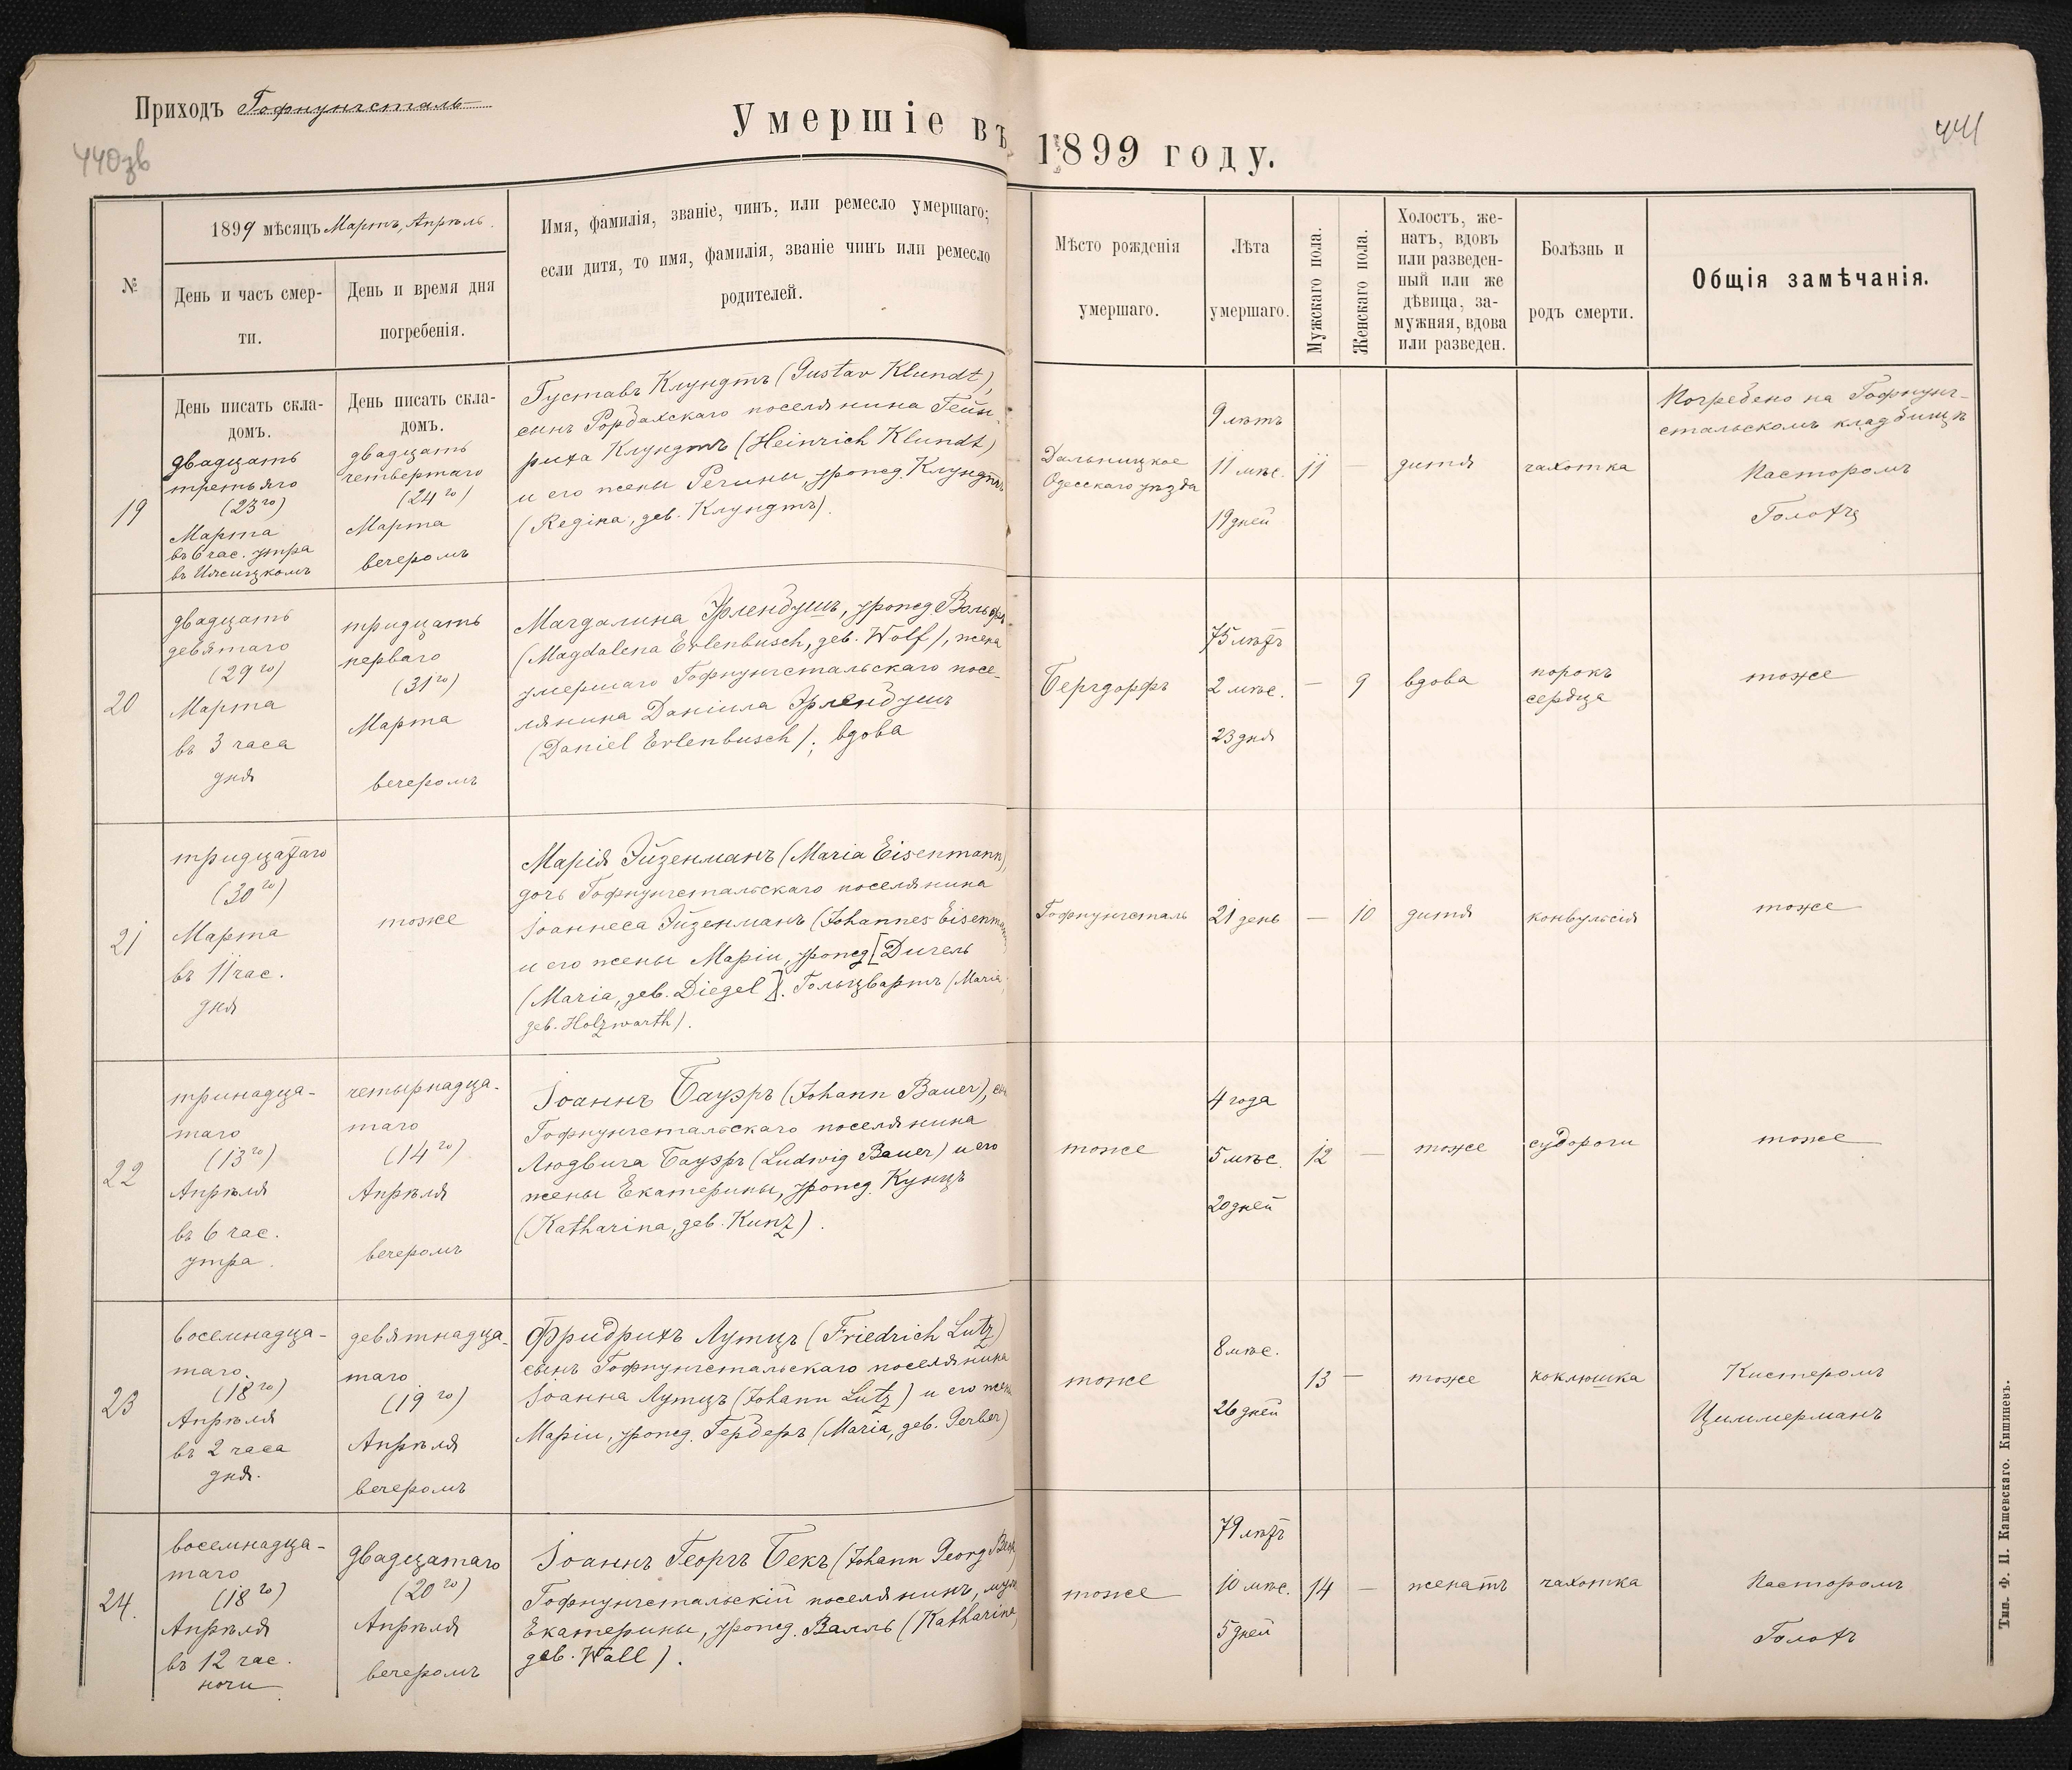 Приходъ Гофнунгсталь
440зв
Умершіе въ 1899 году.
441
№
1899 мѣсяцъ Мартъ, Апрѣль.
День и часъ смер-
ти.
День и время дня
погребенія.
Имя, фамилія, званіе, чинъ, или ремесло умершаго;
если дитя, то имя, фамилія, званіе чинъ или ремесло
родителей.
Мѣсто рожденія
умершаго.
Лѣта
умершаго.
Мужскаго пола.
Женскаго пола.
Холостъ, же-
натъ, вдовъ
или разведен-
ный или же
дѣвица, за-
мужняя, вдова
или разведен.
Болѣзнь и
родъ смерти.
Общія замѣчанія.
День писать скла-
домъ.
День писать скла-
домъ.
19
двадцать
третьяго
(23го)
Марта
въ 6 час. утра
въ
двадцать
четвертаго
(24го)
Марта
вечеромъ
Густавъ Клундтъ (Gustav Klundt),
сынъ Рорбахскаго поселянина Гейн-
риха Клундтъ (Heinrich Klundt)
и его жены Регины, урожд. Клундтъ
(Regina, geb. Клундтъ).
Дальницкое
Одесскаго уѣзда
9 лѣтъ
11 мѣс.
19 дней
11
—
дитя
чахотка
Погребено на Гофнунг-
стальскомъ кладбищѣ
Пасторомъ
20
двадцать
девятаго
(29го)
Марта
въ 3 часа
дня
тридцать
перваго
(31го)
Марта
вечеромъ
Магдалина Эрленбушъ, урожд. Вольфъ
(Magdalena Erlenbusch, geb. Wolf), жена
умершаго Гофнунгстальскаго посе-
лянина Даніила Эрленбушъ
(Daniel Erlenbusch); вдова
Бергдорфъ
75 лѣтъ
2 мѣс.
23 дня
—
9
вдова
порокъ
сердца
тоже
21
тридцатаго
(30го)
Марта
въ 11 час.
дня
тоже
Марія Эйзенманъ (Maria Eisenmann),
дочь Гофнунгстальскаго поселянина
Іоаннеса Эйзенманъ (Johannes Eisenmann)
и его жены Маріи, урожд. [Дигель
(Maria, geb. Diegel)]. Гольцвартъ (Maria,
geb. Holzwarth).
Гофнунгсталь
21 день
—
10
дитя
конвульсія
тоже
22
тринадца-
таго
(13го)
Апрѣля
въ 6 час.
утра.
четырнадца-
таго
(14го)
Апрѣля
вечеромъ
Іоаннъ Бауэръ (Johann Bauer),
Гофнунгстальскаго поселянина
Людвига Бауэръ (Ludwig Bauer) и его
жены Екатерины, урожд. Кунцъ
(Katharina, geb. Kunz).
тоже
4 года
5 мѣс.
20 дней
12
—
тоже
судороги
тоже
23
восемнадца-
таго
(18го)
Апрѣля
въ 2 часа
дня.
девятнадца-
таго
(19го)
Апрѣля
вечеромъ
Фридрихъ Лутцъ (Friedrich Lutz)
сынъ Гофнунгстальскаго поселянина
Іоанна Лутцъ (Johann Lutz) и его жены
Маріи, урожд. Герберъ (Maria, geb. Gerber)
тоже
8 мѣс.
26 дней
13
—
тоже
коклюшка
Кистеромъ
Циммерманъ
24.
восемнадца-
таго
(18го)
Апрѣля
въ 12 час.
ночи
двадцатаго
(20го)
Апрѣля
вечеромъ
Іоаннъ Георгъ Бекъ (Johann Georg Beck)
Гофнунгстальскій поселянинъ, мужъ
Екатерины, урожд. Валль (Katharina,
geb. Wall).
тоже
79 лѣтъ
10 мѣс.
5 дней
14
—
женатъ
чахотка
Пасторомъ
Голохъ
Тип. Ф. П. Кашевскаго. Кишиневъ.